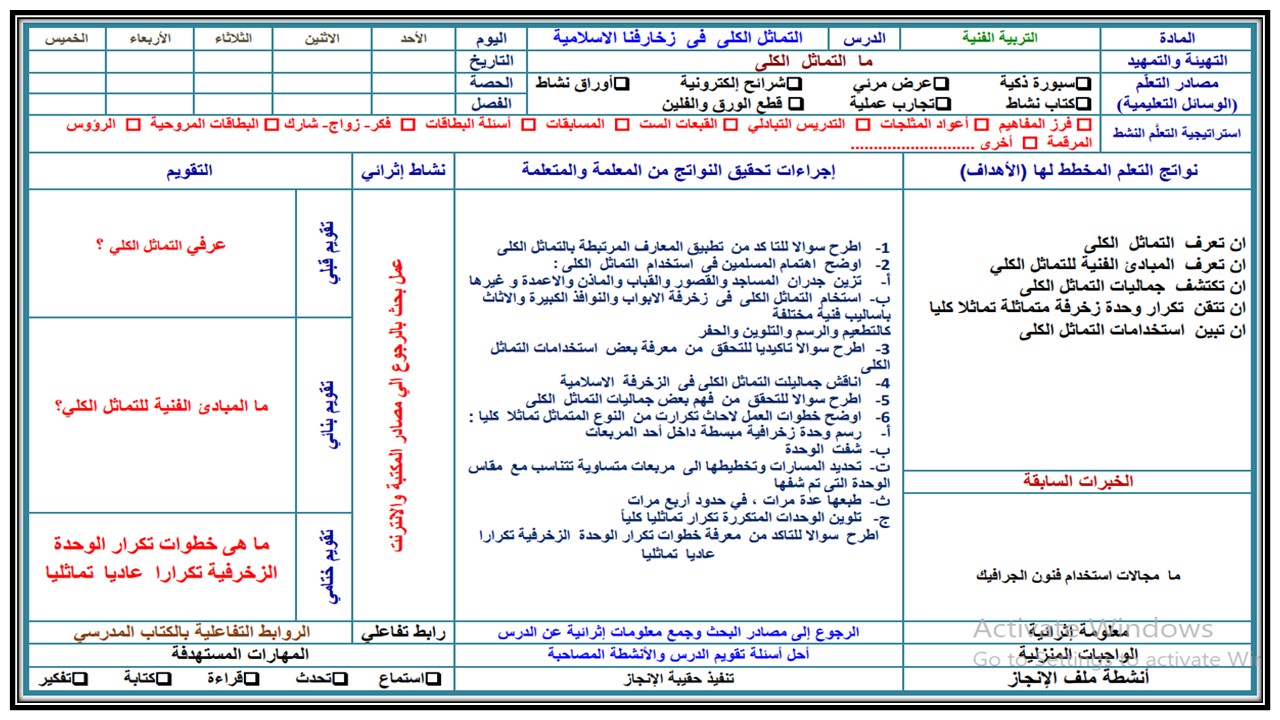 المادة التربية الفنية الدرس التماثل الكلى فى زخارفنا الاسلامية اليوم الأحد الاثنين الثلاثاء الأربعاء الخميس
التهيئة والتمهيد ما التماثل الكلى التاريخ
مصادر التعلّم سبورة ذكية عرض مرئي شرائح إلكترونية أوراق نشاط الحصة
(الوسائل التعليمية) كتاب نشاط تجارب عملية قطع الورق والفلين الفصل
استراتيجية التعلّم النشط
فرز المفاهيم أعواد المثلجات التدريس التبادلي القبعات الست المسابقات أسئلة البطاقات فكر- زواج- شارك البطاقات المروحية الرؤوس
المرقمة أخرى ...........................
نواتج التعلم المخطط لها (الأهداف) إجراءات تحقيق النواتج من المعلمة والمتعلمة نشاط إثرائي التقويم
ان تعرف التماثل الكلى
ان تعرف المبادئ الفنية للتماثل الكلي
ان تكتشف جماليات التماثل الكلى
ان تتقن تكرار وحدة زخرفة متماثلة تماثلا كليا
ان تبين استخدامات التماثل الكلى
الخبرات السابقة
ما مجالات استخدام فنون الجرافيك
1- اطرح سوالا للتا كد من تطبيق المعارف المرتبطة بالتماثل الكلى
2- اوضح اهتمام المسلمين فى استخدام التماثل الكلى :
أ- تزين جدران المساجد والقصور والقباب والماذن والاعمدة و غيرها
ب- استخام التماثل الكلى فى زخرفة الابواب والنوافذ الكبيرة والاثاث
باساليب فنية مختلفة
كالتطعيم والرسم والتلوين والحفر
3- اطرح سوالا تاكيديا للتحقق من معرفة بعض استخدامات التماثل
الكلى
4- اناقش جماليلت التماثل الكلى فى الزخرفة الاسلامية
5- اطرح سوالا للتحقق من فهم بعض جماليات التماثل الكلى
6- اوضح خطوات العمل لاحاث تكرارت من النوع المتماثل تماثلا كليا :
أ- رسم وحدة زخرافية مبسطة داخل أحد المربعات
ب- شفت الوحدة
ت- تحديد المسارات وتخطيطها الى مربعات متساوية تتناسب مع مقاس
الوحدة التى تم شفها
ث- طبعها عدة مرات ، في حدود أربع مرات
ج- تلوين الوحدات المتكررة تكرار تماثليا كلياً
اطرح سوالا للتاكد من معرفة خطوات تكرار الوحدة الزخرفية تكرارا
عاديا تماثليا
عمل بحث بالرجوع الي مصادر المكتبة والانترنت
تقويم قبلي
عرفي التماثل الكلي ؟
تقويم بنائي
ما المبادئ الفنية للتماثل الكلي؟
تقويم ختامي
ما هى خطوات تكرار الوحدة
الزخرفية تكرارا عاديا تماثليا
معلومة إثرائية الرجوع إلى مصادر البحث وجمع معلومات إثرائية عن الدرس رابط تفاعلي الروابط التفاعلية بالكتاب المدرسي
الواجبات المنزلية أحل أسئلة تقويم الدرس والأنشطة المصاحبة المهارات المستهدفة
أنشطة ملف الإنجاز تنفيذ حقيبة الإنجاز استماع تحدث قراءة كتابة تفكير
Activate Windows
Go to Settings to activate Wi